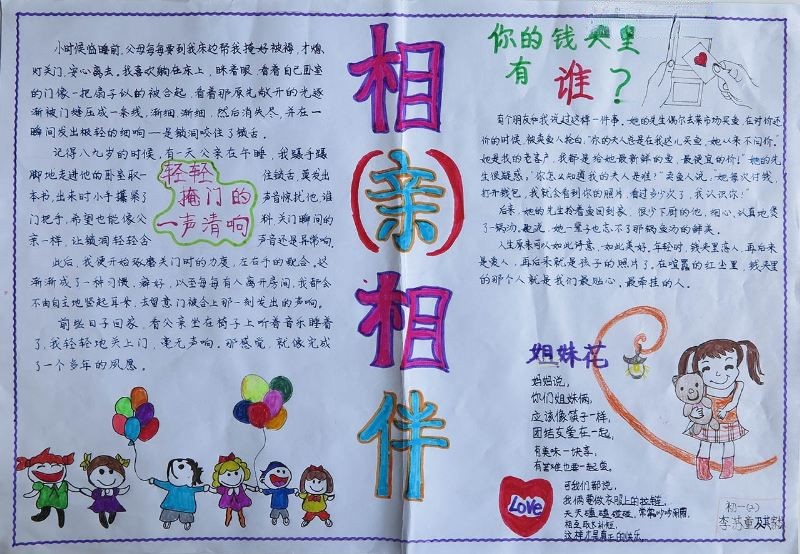 相(亲)相伴
小时候临睡前,父母每每要到我床边帮我掩好被褥,才熄
灯关门,安心离去。我喜欢躺在床上,眯着眼,看着自己卧室
的门像一把扇子似的被合起,看着那原先敞开的光逐
渐被门缝压成一条线,渐细,渐细,然后消失尽,并在一
瞬间发出极轻的细响—是锁洞咬住了锁舌。
记得八九岁的时候,有一天父亲在午睡,我蹑手蹑
脚地走进他的卧室取一
本书,出来时小手攥紧了
门把手,希望也能像父
亲一样,让锁洞轻轻含
住锁舌,莫发出
声音惊扰他,谁
料,关门瞬间的
声音还是异常响,
轻轻
掩门的
一声清响
此后,我便开始琢磨关门时的力度,左右手的配合。逐
渐渐成了一种习惯,癖好,以至每每有人离开房间,我都会
不由自主地竖起耳朵,去留意门被合上那一刻发出的声响。
前些日子回家,看父亲坐在椅子上听着音乐睡着
了,我轻轻地关上门,毫无声响。那感觉,就像完成
了一个多年的夙愿。
你的钱夹里
有谁?
有个朋友和我说过这样一件事。她的先生偶尔去菜市场买鱼,在对价还
价的时候,被卖鱼人抢白,“你的夫人总是在我这儿买鱼,她从来不问价。”
她是我的老客户,我都是给她最新鲜的鱼,最便宜的价!”她的先
生很疑惑:“你怎么知道我的夫人是谁?”卖鱼人说,“她每次付钱
打开钱包,我就会看到你的照片,看过多少次了,我认识你!”
后来,她的先生拎着鱼回到家,很少下厨的他,细心、认真地煲
了一锅汤。她说,她一辈子也忘不了那锅鱼汤的鲜美。
人生原来可以如此诗意,如此美好。年轻时,钱夹里
是爱人,再后来就是孩子的照片了。在喧嚣的红尘里,钱夹里
的那个人就是我们最贴心、最牵挂的人。
姐妹花
妈妈说,
你们姐妹俩,
应该像筷子一样,
团结友爱在一起,
有美味一块尝,
有苦难也要一起
可我们都说,
我俩要做衣服上的拉链,
天天碰碰,常常吵吵闹闹,
相互取长补短,
这样才是真正的快乐。
Love
初一(2)
李 童及其家长